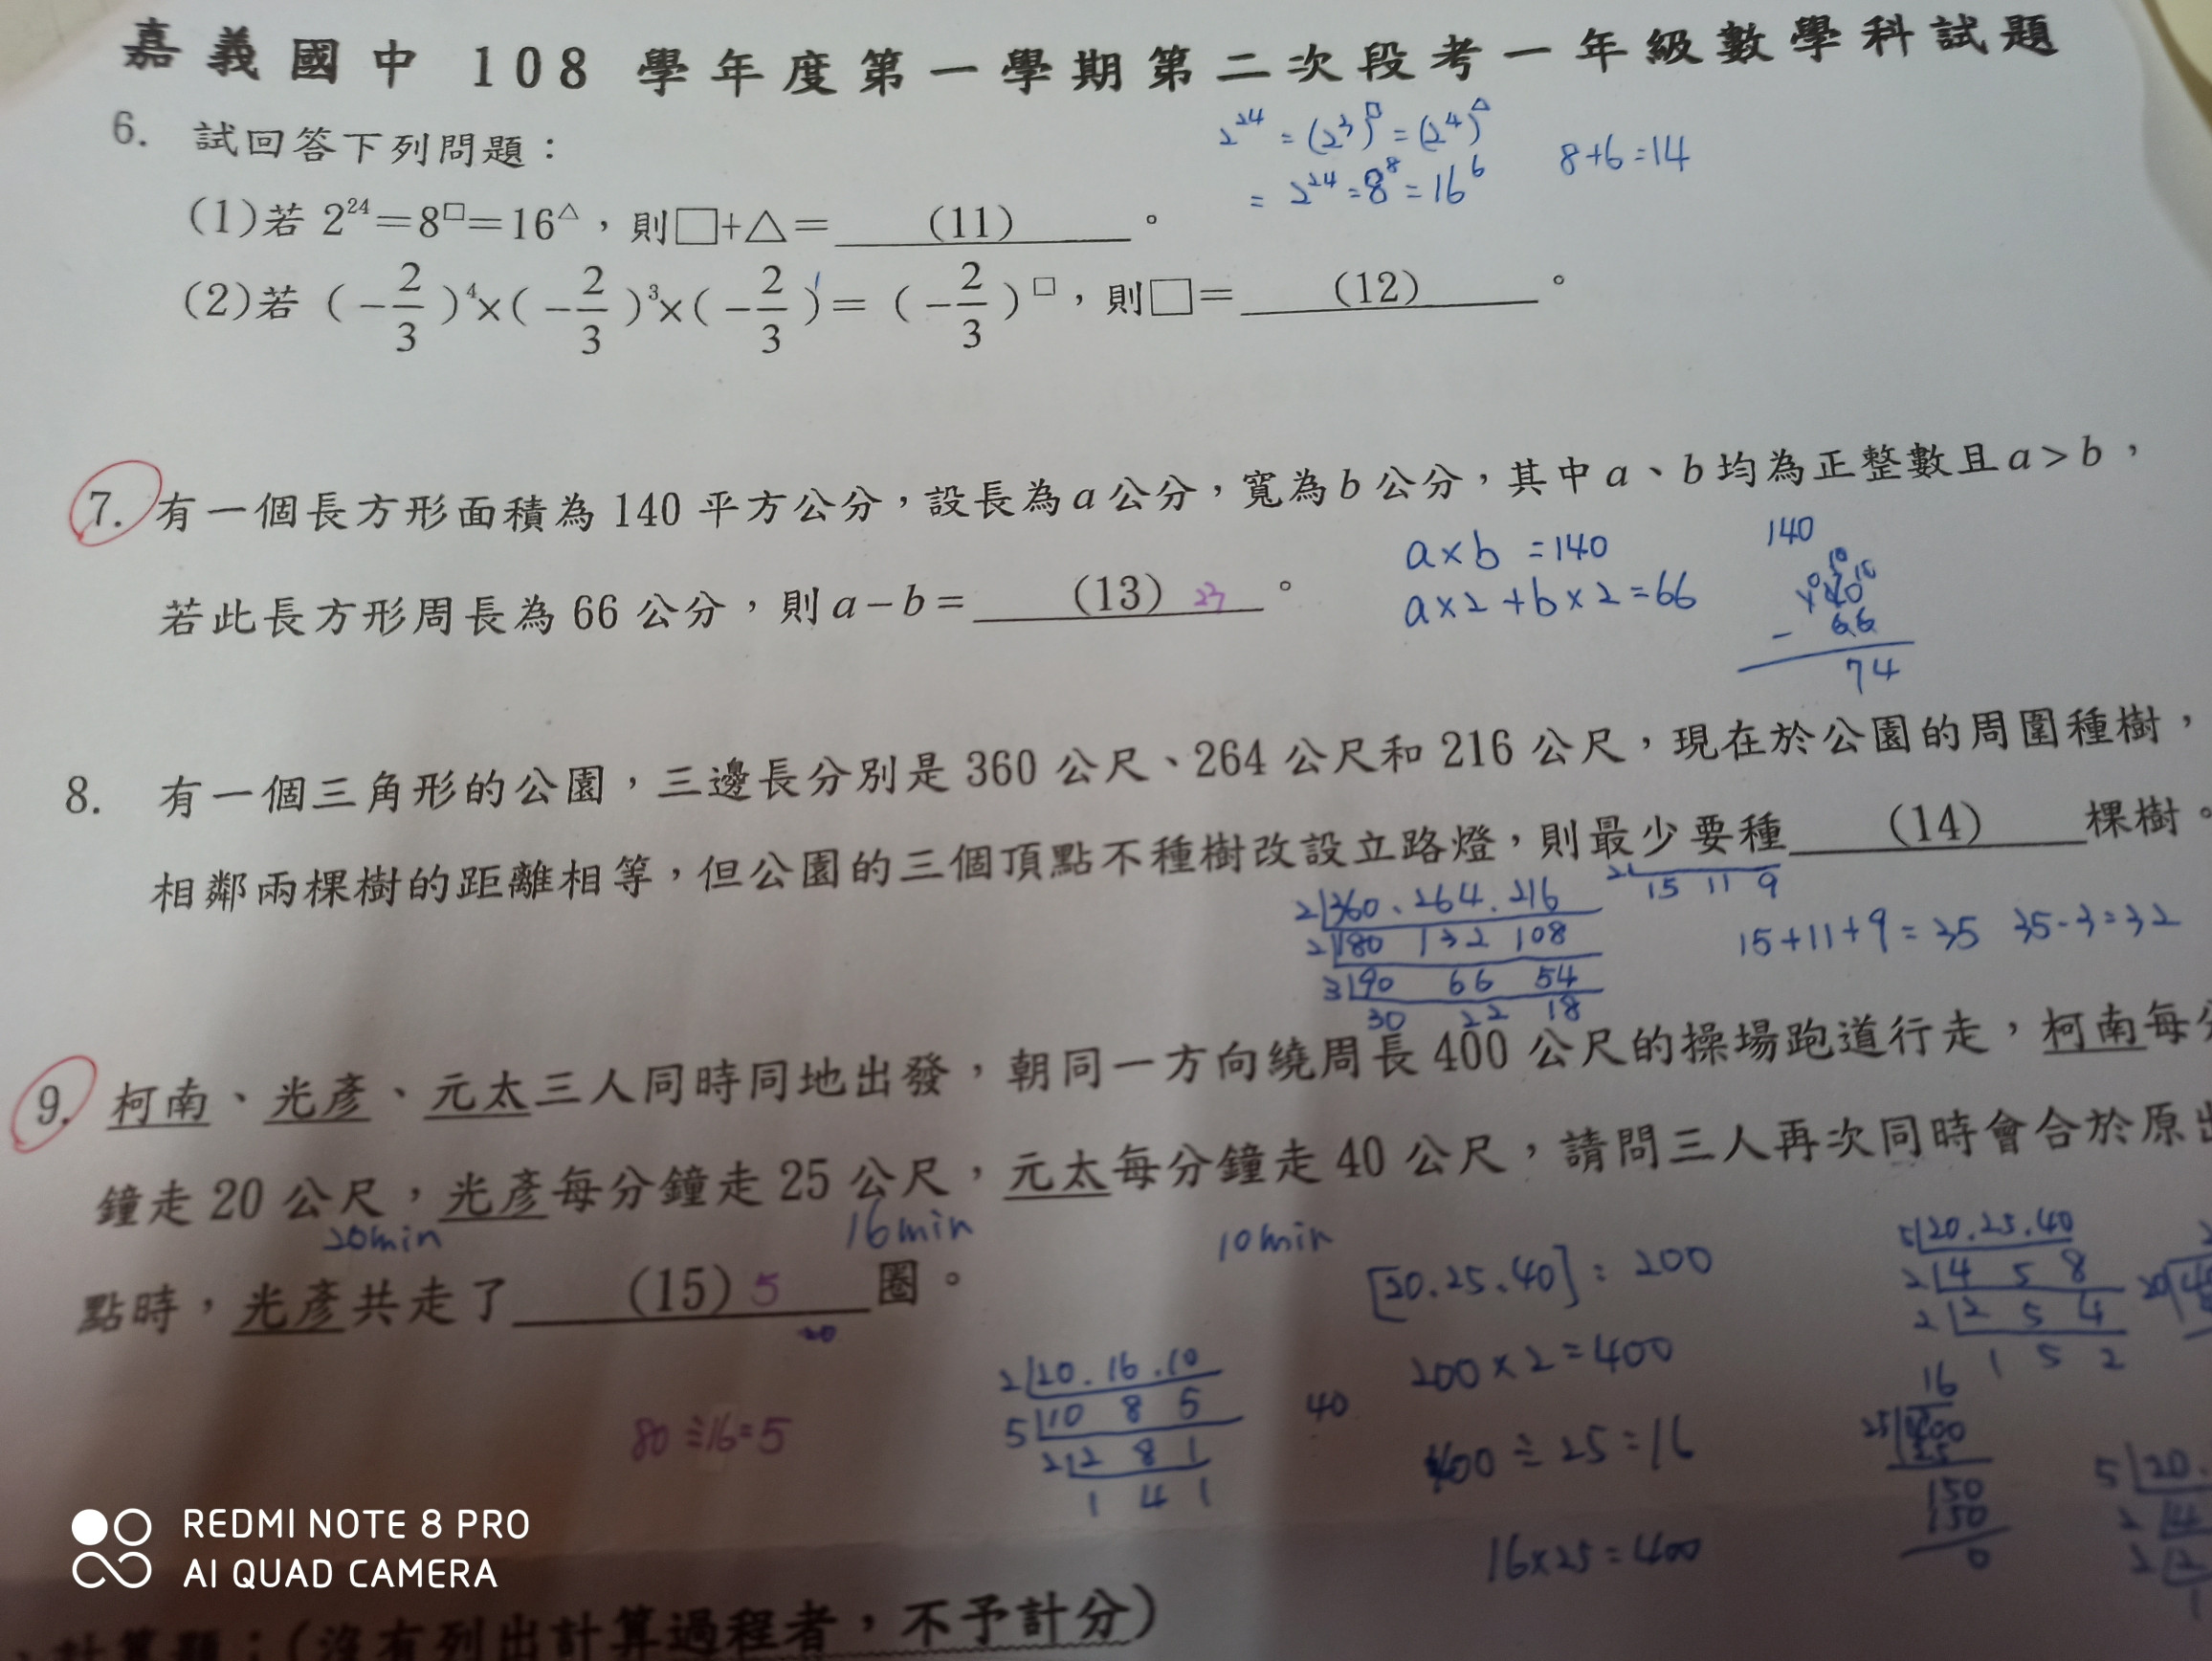 嘉義國中 108 學年度第一學期第二次段考一年級數學科試題
6. 試回答下列問題：
2²⁴ = (2³)^□ = (2⁴)^△
= 2²⁴ = 8⁸ = 16⁶
8+6=14
(1)若 2²⁴＝8^□＝16^△，則□+△＝ (11) 。
(2)若 (－2/3)⁴×(－2/3)³×(－2/3)¹＝(－2/3)^□，則□＝ (12) 。
7. 有一個長方形面積為 140 平方公分，設長為 a 公分，寬為 b 公分，其中 a、b 均為正整數且 a > b，
若此長方形周長為 66 公分，則 a－b＝ (13) 23 。
a×b =140
a×2+b×2=66
140
- 66
74
8. 有一個三角形的公園，三邊長分別是 360 公尺、264 公尺和 216 公尺，現在於公園的周圍種樹，
相鄰兩棵樹的距離相等，但公園的三個頂點不種樹改設立路燈，則最少要種 (14) 棵樹。
2 360、264、216
2 180 132 108
3 90 66 54
30 22 18
15 11 9
15+11+9=35 35-3=32
9. 柯南、光彥、元太三人同時同地出發，朝同一方向繞周長 400 公尺的操場跑道行走，柯南每
鐘走 20 公尺，光彥每分鐘走 25 公尺，元太每分鐘走 40 公尺，請問三人再次同時會合於原
20min 16min 10min
點時，光彥共走了 (15) 5 圈。
20
[20.25.40]=200
200×2=400
400÷25=16
16×25=400
5 20.25.40
2 4 5 8
2 2 5 4
1 5 2
2 20.16.10
5 10 8 5
2 2 8 1
1 4 1
40
80÷16=5
16
25 400
150
150
0
5 20.
2 4
2 2
1
REDMI NOTE 8 PRO
AI QUAD CAMERA
計算題：(沒有列出計算過程者，不予計分)